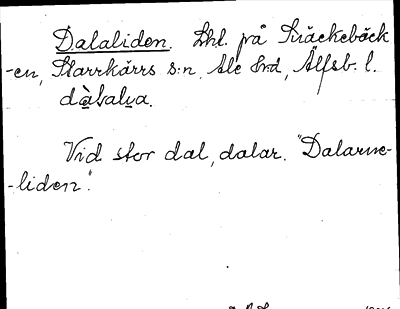 Dalaliden. Lhl. på Kräckebäck
-en, Starrkärrs s:n Ale hrd, Älfsb. l.
dàbalia.
Vid stor dal, dalar. "Dalarne-
-liden".